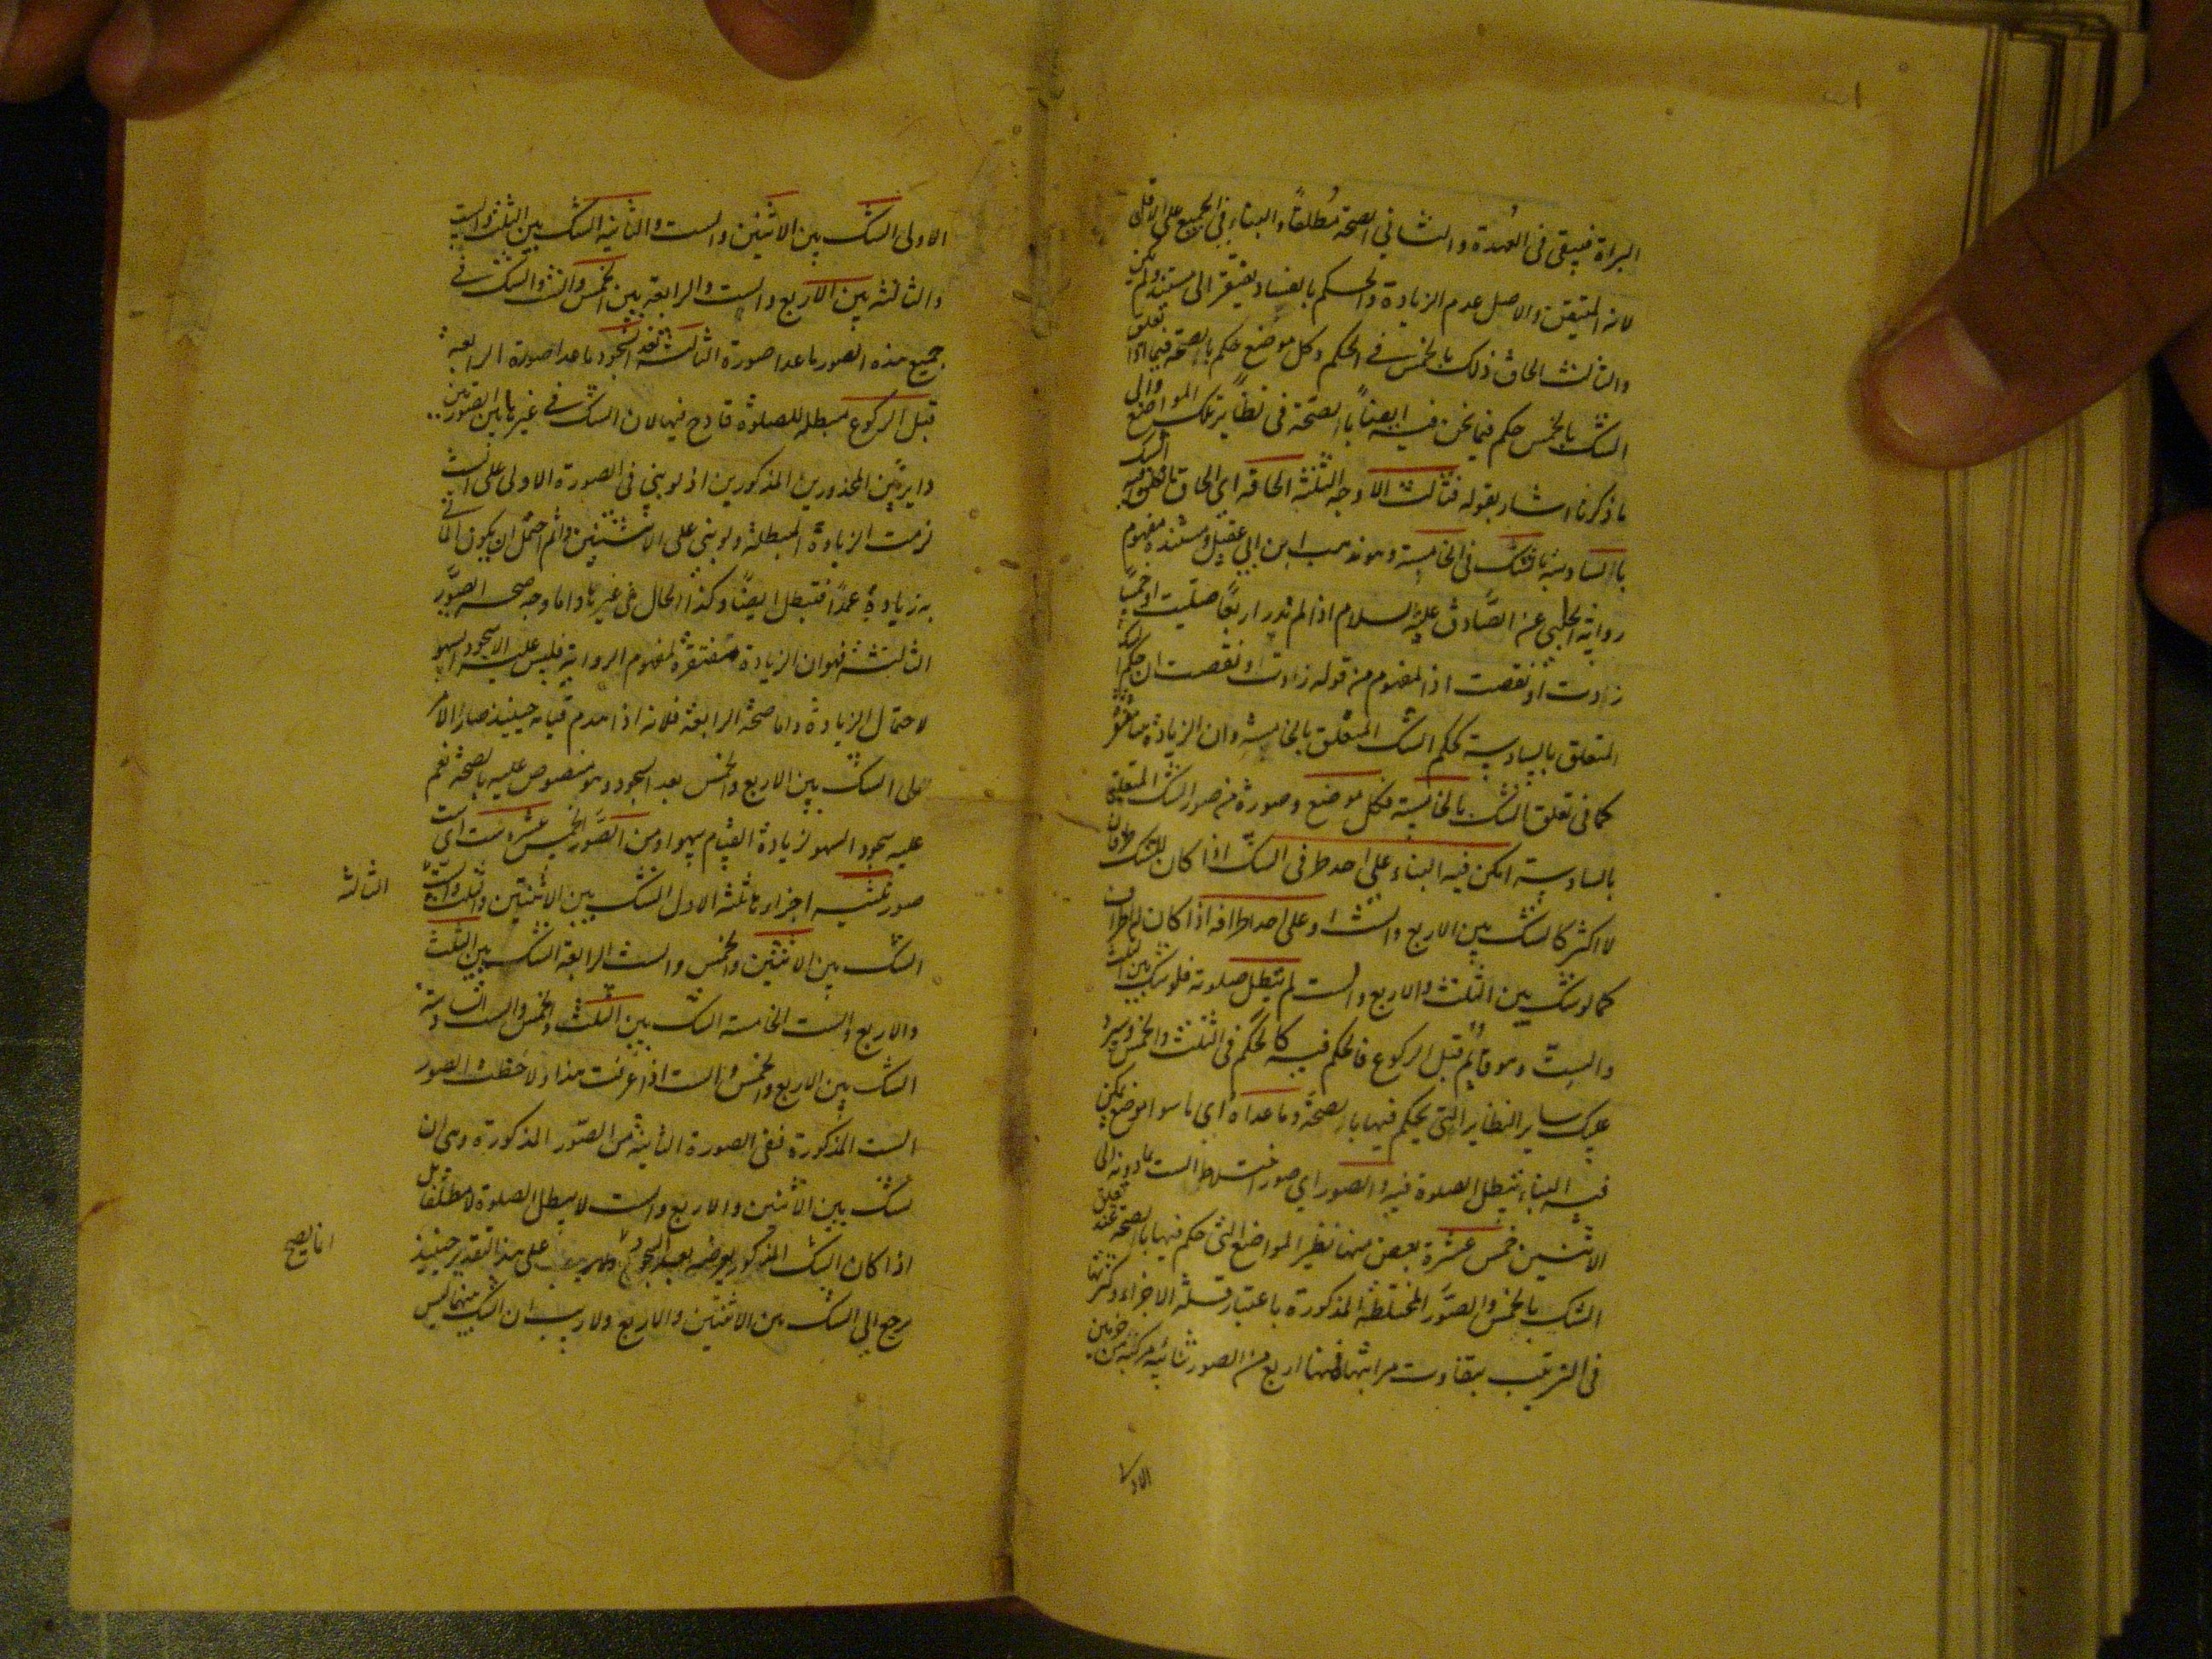 البراة فيبقى فى العهدة والثانى الصحة مطلقاً والبناء فى الجميع على الاقل
لانه المتيقن والاصل عدم الزيادة والحكم بالفساد يفتقر الى مستند ولم يكن
والثالث الحاق ذلك بالخمس فى الحكم وكل موضع حكم بالصحة فيما اذا تعلق
الشك بالخمس حكم فيما نحن فيه ايضاً بالصحة فى نظاير تلك المواضع والى
ما ذكرنا اشار بقوله فثالث الاوجه الثلثة الحاقه اى الحاق ما تعلق فيه الشك
بالسادسة بالشك فى الخامسة وهو مذهب ابن ابي عقيل ومستنده مفهوم
رواية الحلبى عن الصادق عليه السلام اذا لم تدر اربعاً صليت او خمساً
زادت او نقصت اذ المفهوم من قوله زادت او نقصت ان حكم الشك
المتعلق بالسادسة كحكم الشك المتعلق بالخامسة وان الزيادة مغتفرة
كما فى تعلق الشك بالخامسة فكل موضع وصورة من صور الشك المتعلق
بالسادسة امكن فيه البناء على احد طرفى الشك اذا كان للشك طرفان
لا اكثر كالشك بين الاربع والست او على احد اطرافه اذا كان له اطراف
كما لو شك بين الثلث والاربع والست لم تبطل صلوته فلو شك بين الثلث
والست وهو قايم قبل الركوع فالحكم فيه كالحكم فى الثلث والخمس
عليك ساير النظاير التى يحكم فيها بالصحة وما عداه اى ما سوا موضع يمكن
فيه البناء تبطل الصلوة فيه والصور اى صور اختلاط الست بما دونه الى
الاثنين خمس عشرة بعض منها نظير المواضع التى حكم فيها بالصحة عند تعلق
الشك بالخمس والصور المختلطة المذكورة باعتبار قلة الاجزاء وكثرتها
فى التركيب بتفاوت مراتبها فمنها اربع من الصور ثنائية مركبة من جزئين
الاولى
الاولى الشك بين الاثنين والست والثانية الشك بين الثلث والست
والثالثة بين الاربع والست والرابعة بين الخمس والست والشك فى
جميع هذه الصور ما عدا صورة الثالثة بعد السجود وما عدا صورة الرابعة
قبل الركوع مبطلة للصلوة قادح فيها لان الشك فى غير هاتين الصورتين
داير بين المحذورين المذكورين اذ لو بنى فى الصورة الاولى على الست
لزمت الزيادة المبطلة ولو بنى على الاثنتين واتم احتمل ان يكون
به زيادة عمداً فتبطل ايضاً وكذا الحال فى غيرها واما وجه صحة الصور
الثالثة فهو ان الزيادة مغتفرة لمفهوم الرواية فليس عليه الا سجود السهو
لاحتمال الزيادة واما صحة الرابعة فلانه اذا هدم قيامه حينئذ صار الامر
الى الشك بين الاربع والخمس بعد السجود وهو منصوص عليه بالصحة نعم
عليه سجود السهو لزيادة القيام سهوا ومن الصور الخمس عشره ست اى ست
صور ثلثيه اجزاءها ثلثة الاول الشك بين الاثنتين والثلث والست
الشك بين الاثنتين والخمس والست الرابعة الشك بين الثلث
والاربع والست الخامسة الشك بين الثلث والخمس والست السادسة
الشك بين الاربع والخمس والست اذا عرفت هذا ولاحظت الصور
الست المذكورة ففى الصورة الثانية من الصور المذكورة وهى ان
شك بين الاثنين والاربع والست لا يبطل الصلوة لا مطلقا بل
اذا كان الشك المذكور يعرضه بعد السجود على هذا التقدير حينئذ
يرجع الى الشك بين الاثنتين والاربع ولا ريب ان الشك بينهما ليس
الثالثة
انما يصح